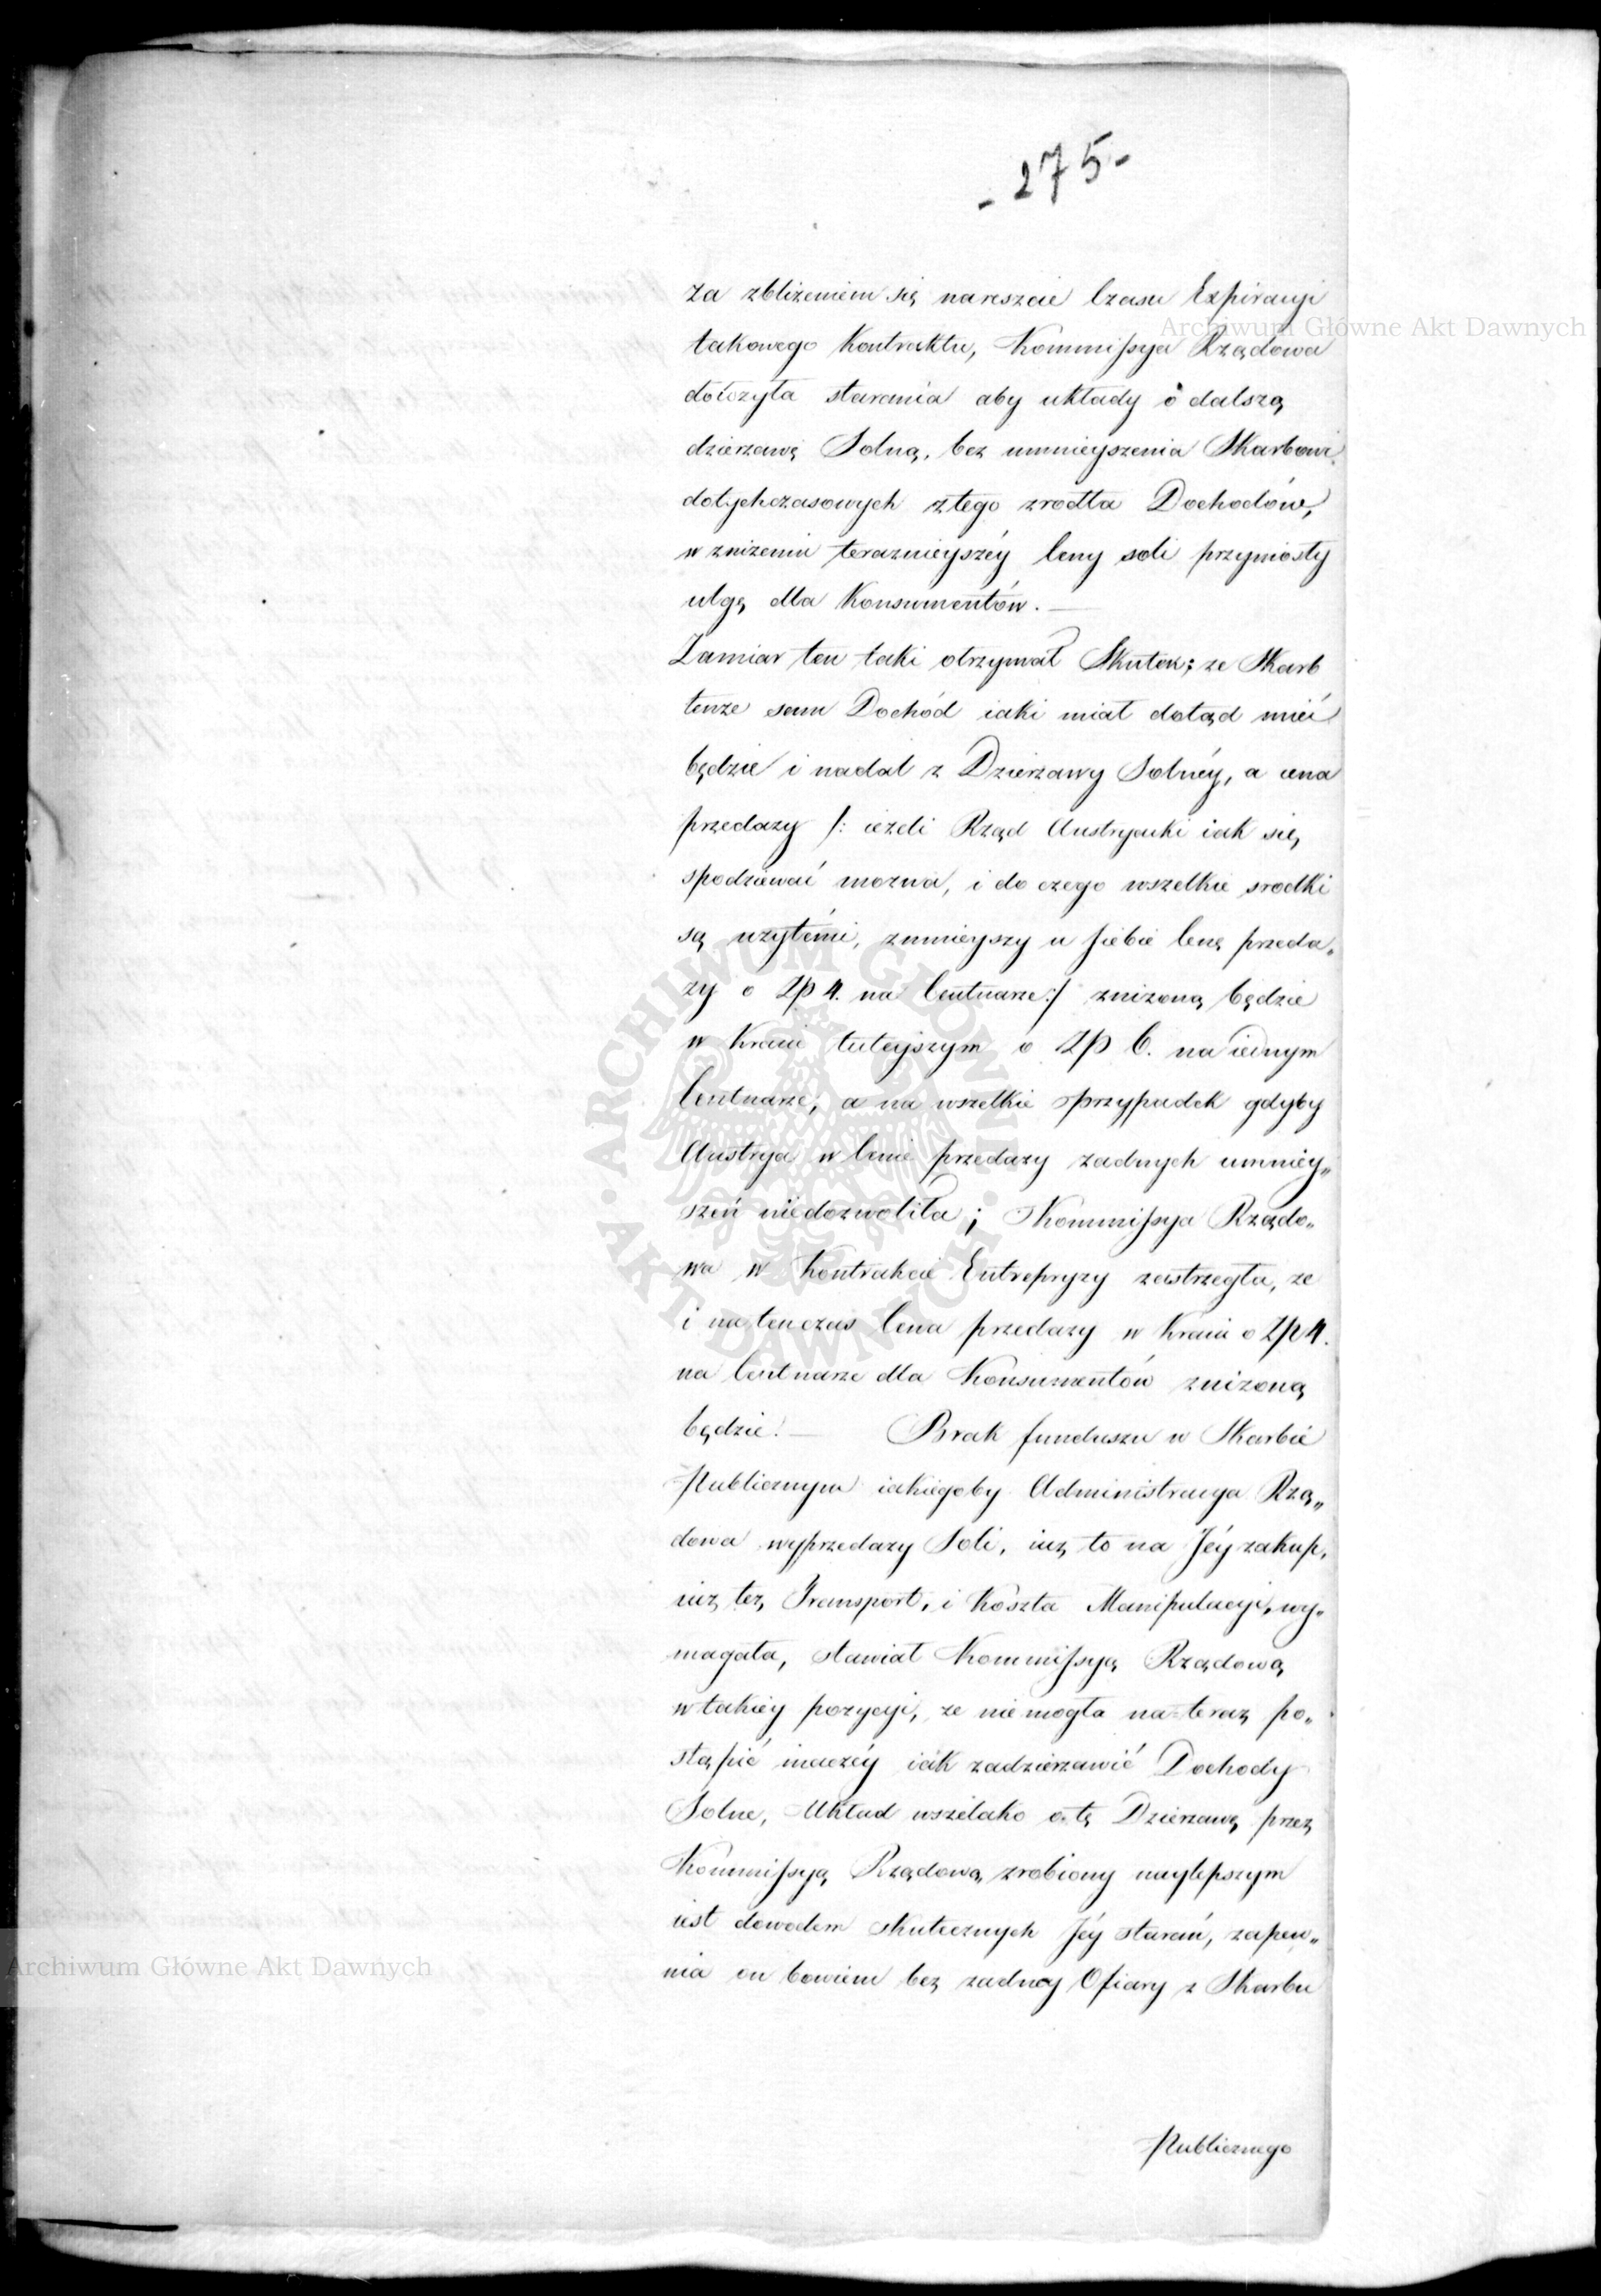 - 275 -
Za zbliżeniem się nareszcie Czasu Expiracyi
takowego Kontraktu, Kommissya Rządowa
dołożyła starania aby układy o dalszą
dzierzawę Solną, bez umnieyszenia Skarbowi
dotychczasowych z tego zrodła Dochodów,
w zniżeniu teraznieyszéy Ceny soli przyniosły
ulgę dla Konsumentów. —
Zamiar ten taki otrzymał Skutek; ze Skarb
tenze sam Dochód iaki miał dotąd mieć
będzie i nadal z Dzierzawy Solnéy, a cena
przedazy /: iezeli Rząd Austryacki iak się
spodziewać mozna, i do czego wszelkie srodki
są uzytémi, zmnieyszy u siebie Cenę przeda„
zy o Zp 4. na Centnarze :/ znizoną będzie
w Kraiu tuteyszym o Zp 6. na iednym
Centnarze; a na wszelkie przypadek gdyby
Austrya w Cenie przedazy zadnych umniey„
szeń niedozwoliła; Kommissya Rządo„
wa w Kontrakcie Entrepryzy zastrzegła, ze
i natenczas Cena przedazy w Kraiu o Zp 4.
na Centnarze dla Konsumentów znizoną
będzie. — Brak funduszu w Skarbie
Publicznym iakiegoby Administracya Rzą„
dowa wyprzedazy Soli, iuz to na Jéy zakup,
iuz tez Transport, i Koszta Manipulacyi, wy„
magała, stawiał Kommissyą Rządową
w takiéy pozycyi, ze niemogła na teraz po„
stąpić inaczéy iak zadzierzawić Dochody
Solne, Układ wszelako o tę Dzierzawę przez
Kommissyą Rządową zrobiony naylepszym
iest dowodem skutecznych Jéy starań, zapew„
nia on bowiem bez zadney Ofiary z Skarbu
Publicznego
Archiwum Główne Akt Dawnych
Archiwum Główne Akt Dawnych
ARCHIWUM GŁÓWNE AKT DAWNYCH